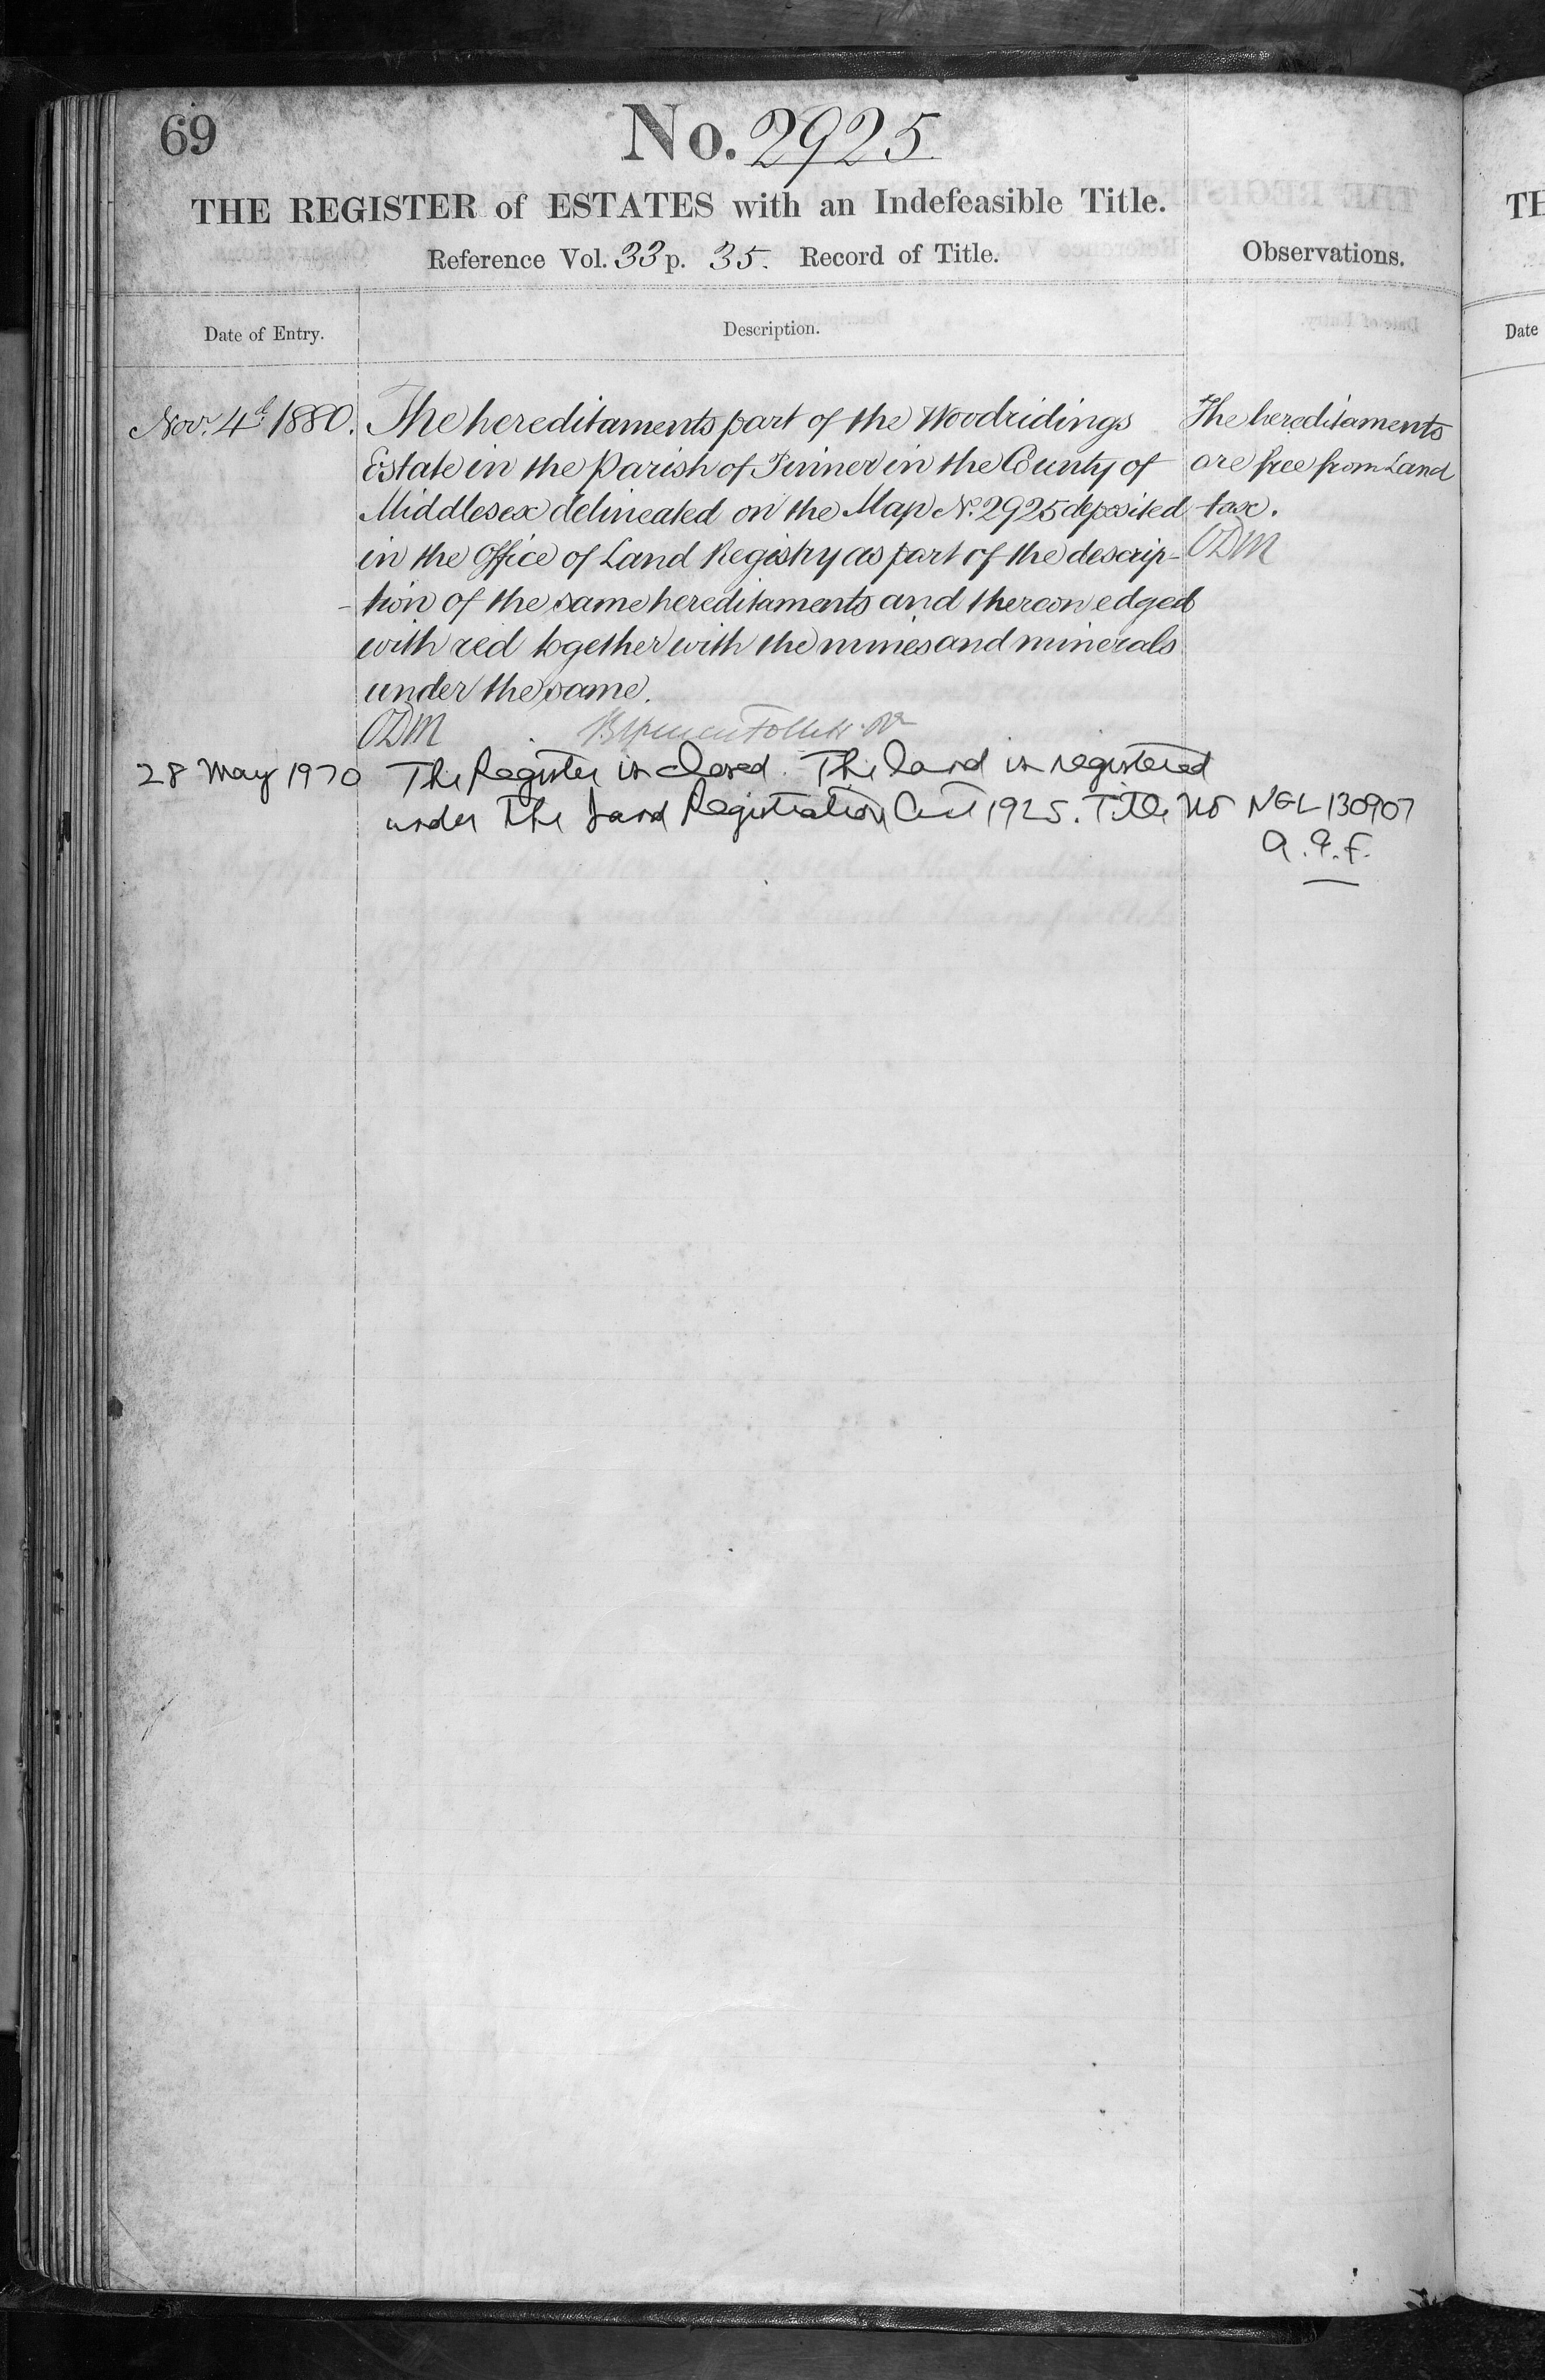 69
No. 2925
THE REGISTER of ESTATES with an Indefeasible Title.
Reference Vol. 33 p. 35. Record of Title.
Observations.
Date of Entry.
Description.
Nov. 4th 1880.
The hereditaments part of the Woodridings
Estate in the Parish of Pinner in the County of
Middlesex delineated on the Map No. 2925 deposited
in the Office of Land Registry as part of the descrip-
-tion of the same hereditaments and thereon edged
with red together with the mines and minerals
under the same.
ODM
The hereditaments
are free from Land
tax.
ODM
28 May 1970
The Register is closed. The land is registered
under the Land Registration Act 1925. Title No NGL 130907
a.g.f.
TH
Date